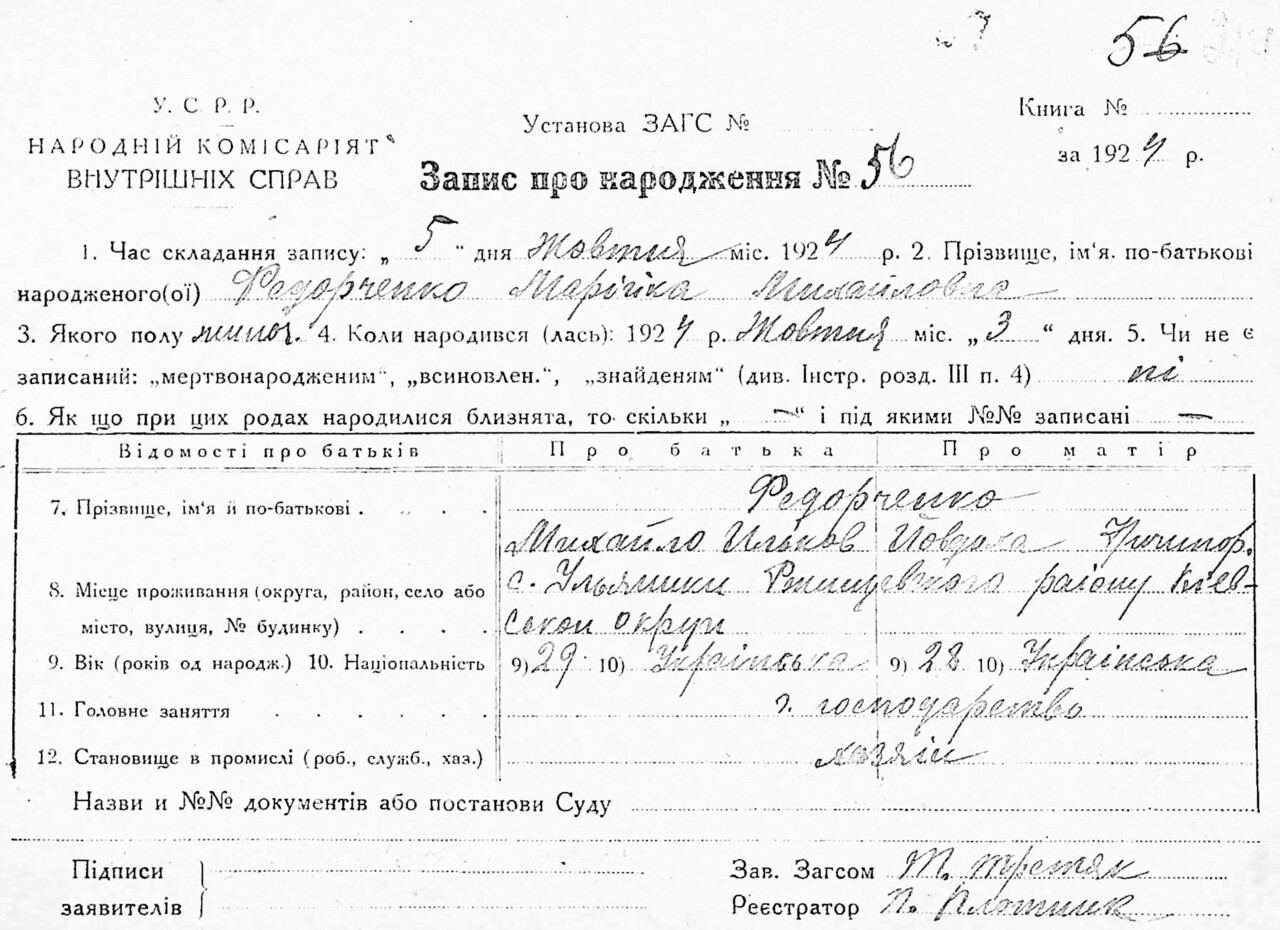 56
У. С. Р. Р.
НАРОДНІЙ КОМІСАРІЯТ
ВНУТРІШНІХ СПРАВ
Установа ЗАГС №
Книга №
за 1924 р.
Запис про народження № 56
1. Час складання запису: „ 5 “ дня Жовтня міс. 1924 р. 2. Прізвище, ім‘я. по-батькові
народженого(ої) Федорченко Марійка Михайловна
3. Якого полу жиноч. 4. Коли народився (лась): 1924 р. Жовтня міс. „ 3 “ дня. 5. Чи не є
записаний: „мертвонародженим“, „всиновлен.“, „знайденям“ (див. Інстр. розд. III п. 4) ні
6. Як що при цих родах народилися близнята, то скільки „ — “ і під якими №№ записані —
Відомості про батьків Про батька Про матір
7. Прізвище, ім‘я й по-батькові . . . . Федорченко
Михайло Ильков Йовдоха Ничипор.
8. Місце проживання (округа, район, село або с. Ульяники Ржищевького району Київ-
місто, вулиця, № будинку) . . . . ськои округи
9. Вік (років од народж.) 10. Національність 9) 29 10) Українська 9) 28 10) Українська
11. Головне заняття . . . . . . г. господарство
12. Становище в промислі (роб., служб., хаз.) хазяїн
Назви и №№ документів або постанови Суду
Підписи
заявителів
Зав. Загсом Т. Третяк
Реєстратор П. Плотник